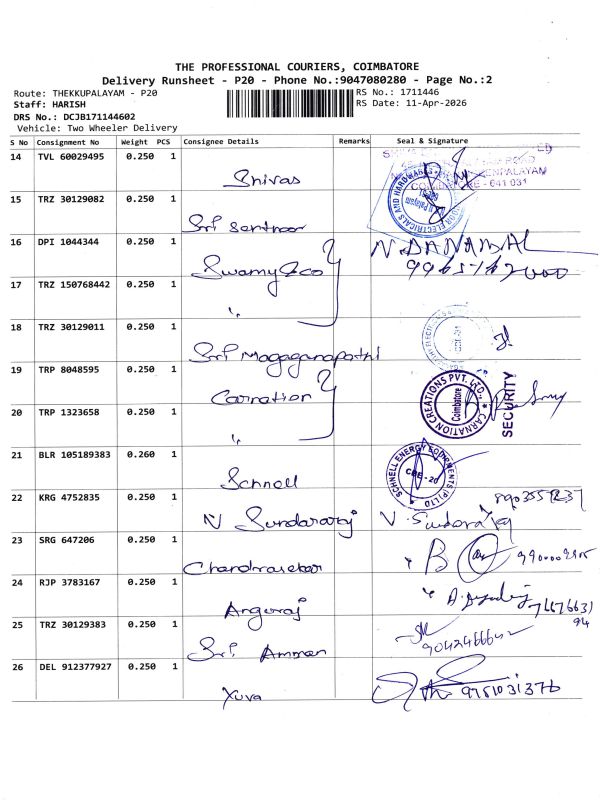 THE PROFESSIONAL COURIERS, COIMBATORE
Delivery Runsheet - P20 - Phone No.:9047080280 - Page No.:2
Route: THEKKUPALAYAM - P20
RS No.: 1711446
Staff: HARISH
RS Date: 11-Apr-2026
DRS No.: DCJB171144602
Vehicle: Two Wheeler Delivery
S No Consignment No Weight PCS Consignee Details Remarks Seal & Signature
14 TVL 60029495 0.250 1
Shivas
COIMBATORE - 641 031
15 TRZ 30129082 0.250 1
Sri Senthoor
16 DPI 1044344 0.250 1
Swamy & co
N. DANABAL
17 TRZ 150768442 0.250 1
"
18 TRZ 30129011 0.250 1
Sri Magaganapathi
19 TRP 8048595 0.250 1
Carnation
CARNATION CREATIONS PVT. LTD.,
Coimbatore
SECURITY
20 TRP 1323658 0.250 1
"
21 BLR 105189383 0.260 1
Schnell
SCHNELL ENERGY EQUIPMENTS (P) LTD
CBE - 20
22 KRG 4752835 0.250 1
N Sundararaj
23 SRG 647206 0.250 1
Chandrasekar
24 RJP 3783167 0.250 1
Anguraj
25 TRZ 30129383 0.250 1
Sri Amman
26 DEL 912377927 0.250 1
Yuva
9751031376